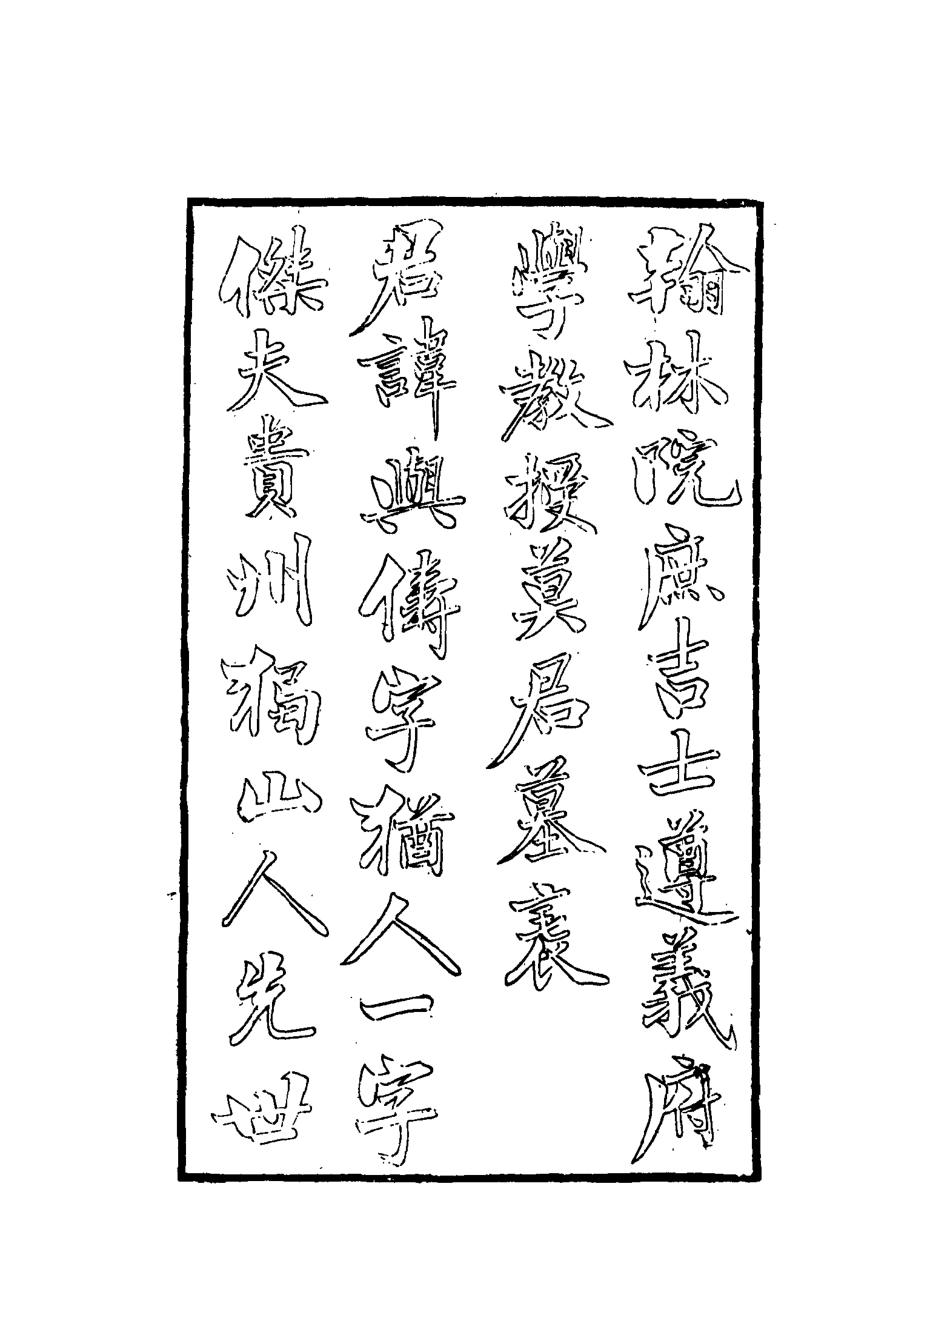 翰林院庶吉士遵義府
學教授莫君墓表
君諱與儔字猶人一字
傑夫貴州獨山人先世